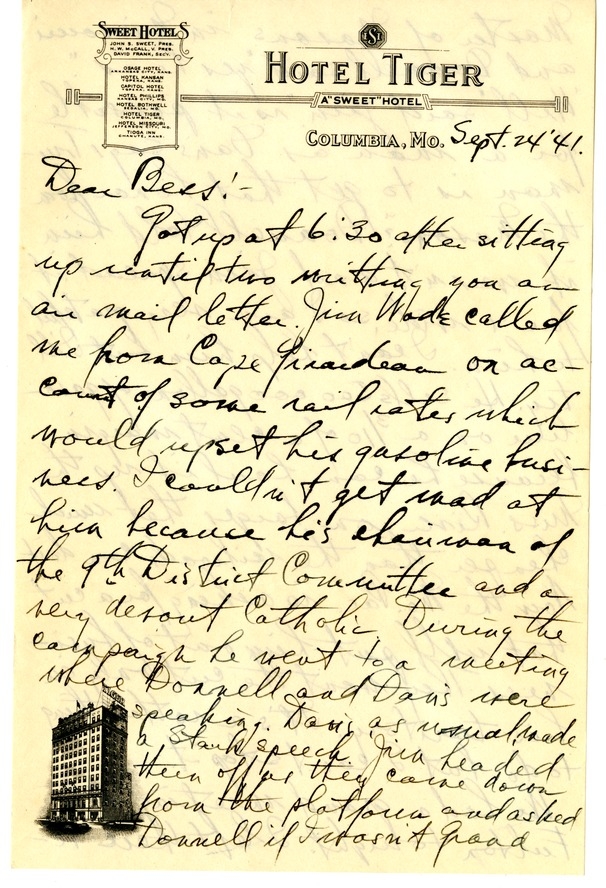 SWEET HOTELS
JOHN S. SWEET, PRES.
H. W. McCALL, V. PRES.
DAVID FRANK, SECY.
OSAGE HOTEL
ARKANSAS CITY, KANS.
HOTEL KANSAN
TOPEKA, KANS.
CAPITOL HOTEL
TOPEKA, KANS.
HOTEL PHILLIPS
KANSAS CITY, MO.
HOTEL BOTHWELL
SEDALIA, MO.
HOTEL TIGER
COLUMBIA, MO.
HOTEL MISSOURI
JEFFERSON CITY, MO.
TIOGA INN
CHANUTE, KANS.
HOTEL TIGER
A "SWEET" HOTEL
COLUMBIA, MO. Sept. 24 '41.
Dear Bess:-
Got up at 6:30 after sitting
up until two writting you an
air mail letter. Jim Wade called
me from Cape Girardeau on ac-
count of some rail rates which
would upset his gasoline busi-
ness. I couldn't get mad at
him because his chairman of
the 9th District Committee and a
very devout Catholic. During the
campaign he went to a meeting
where Donnell and Davis were
speaking. Davis, as usual, made
a speech. Jim headed
them off as they came down
from the platform and asked
Donnell if I wasn't Grand